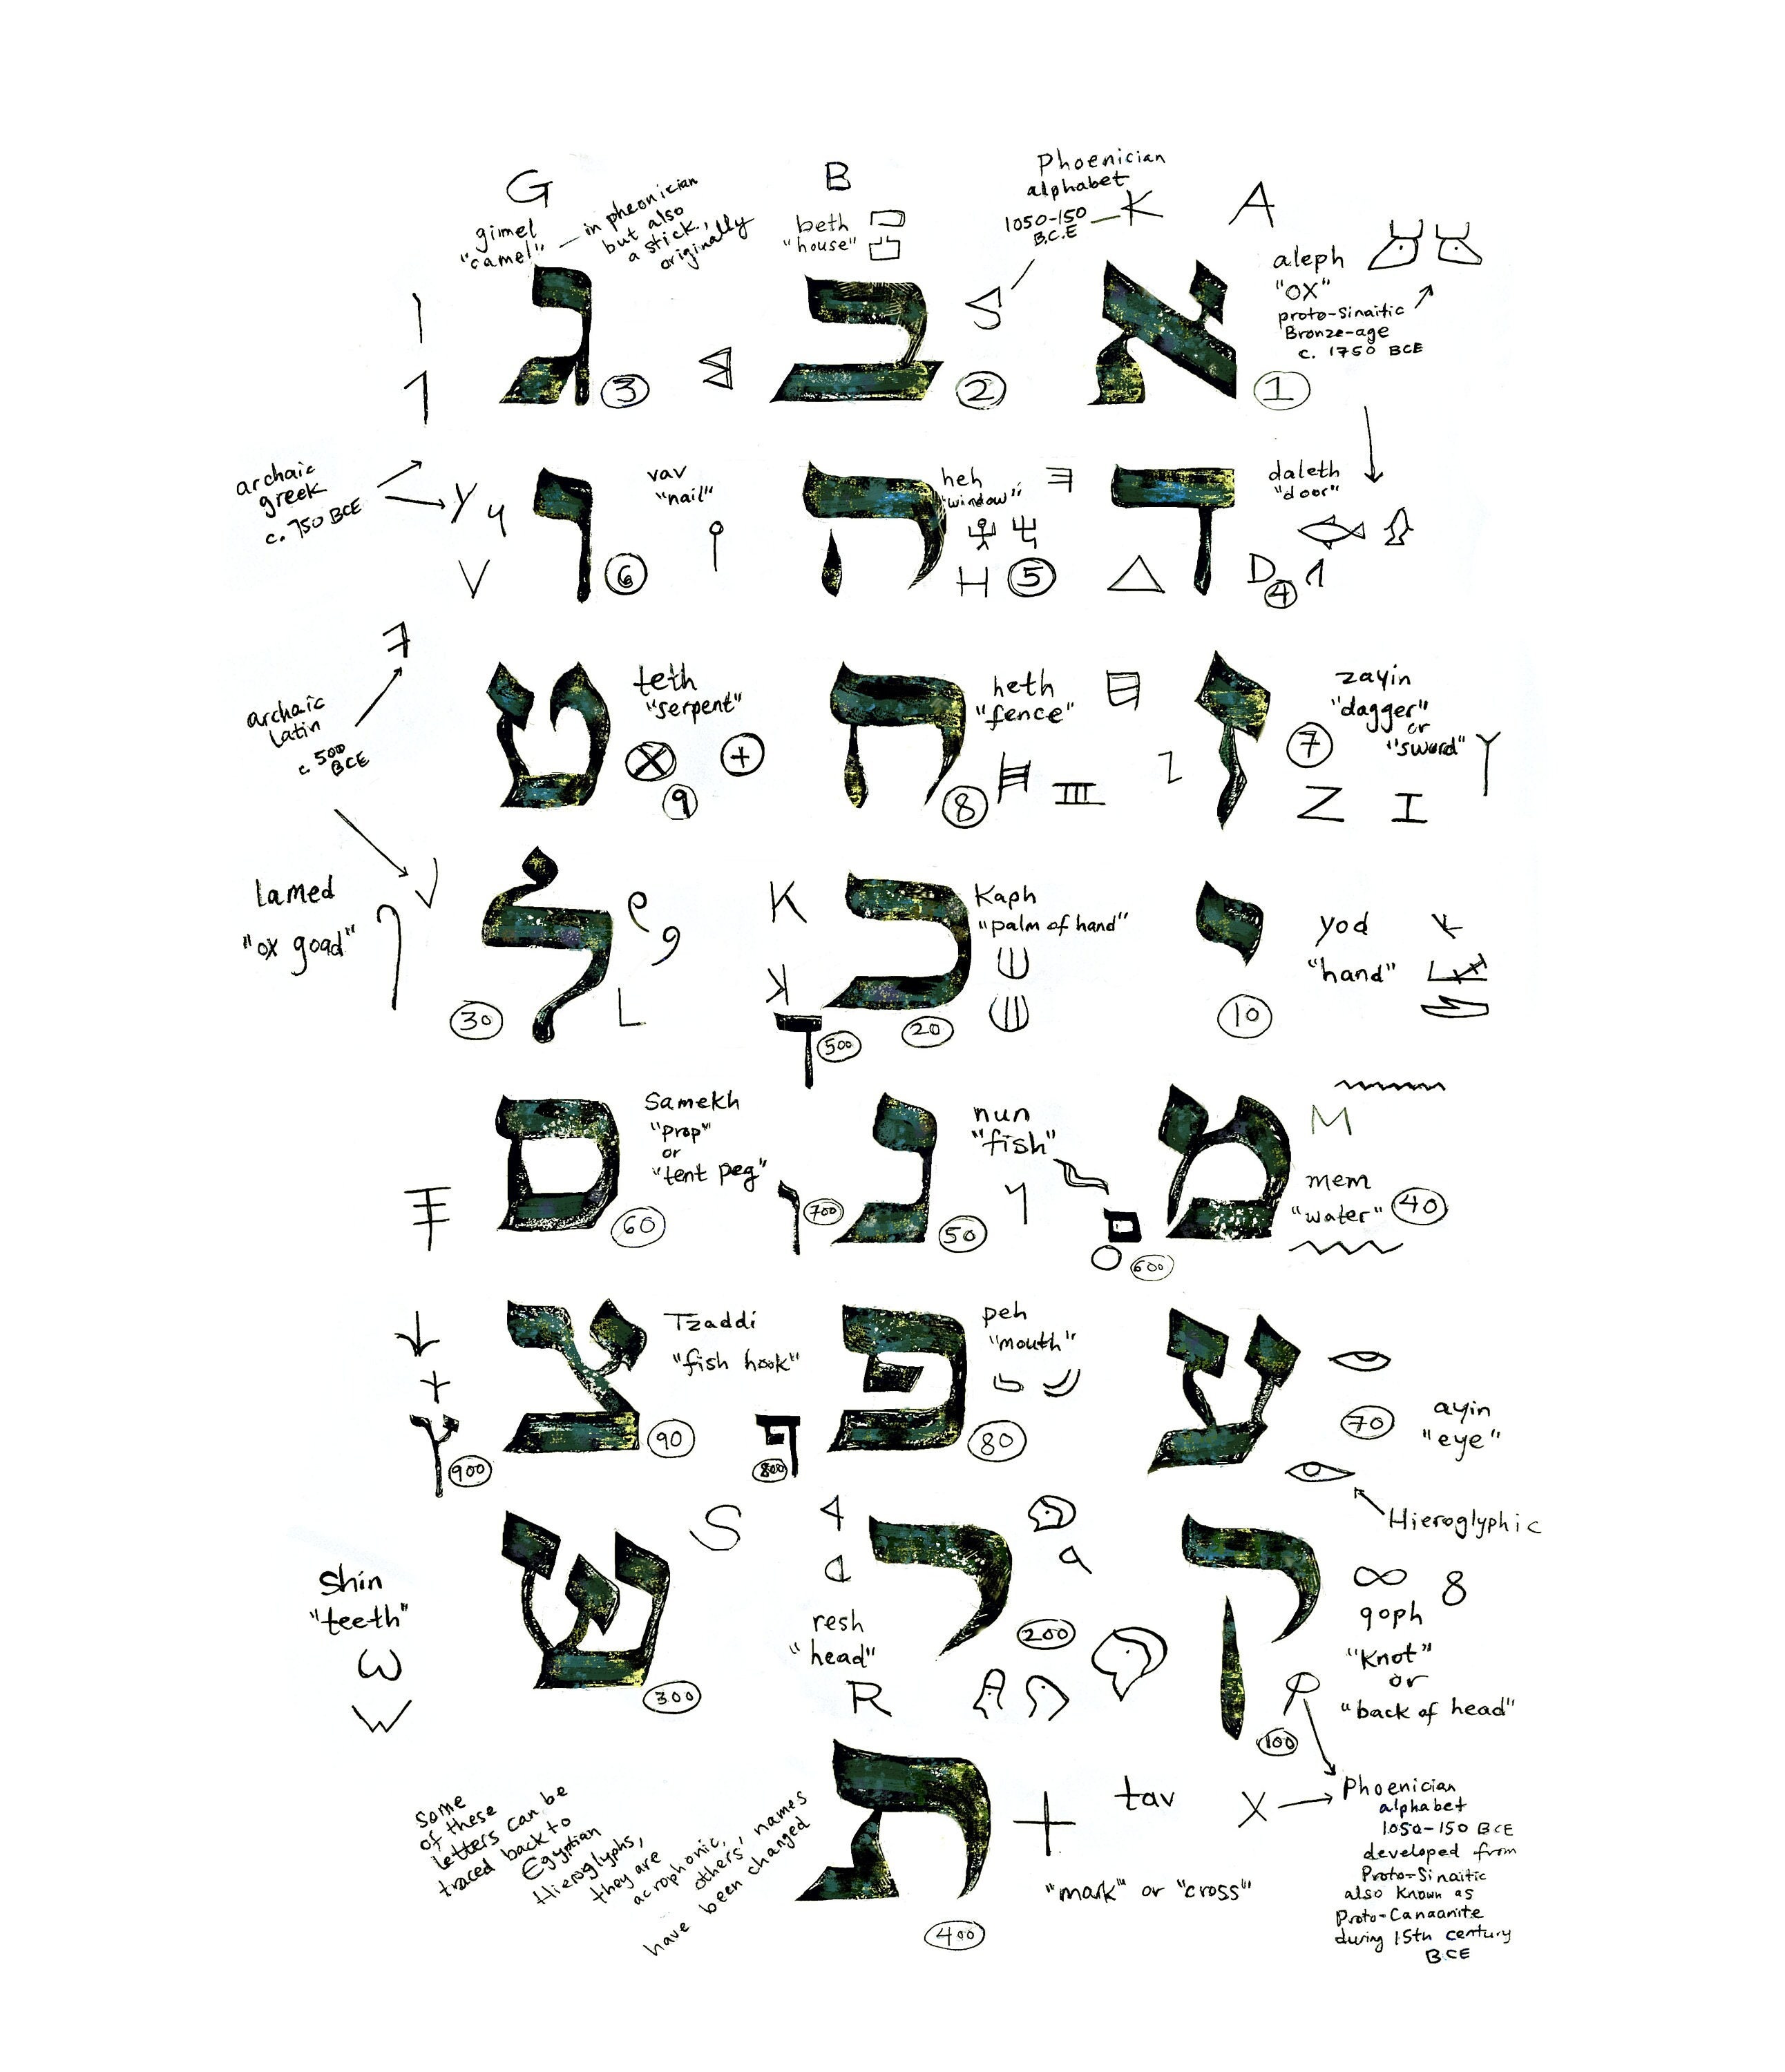 Phoenician
alphabet
1050-150
B.C.E
K
A
aleph
"OX"
proto-Sinaitic
Bronze-age
c. 1750 BCE
א
1
B
beth
"house"
ב
2
G
gimel
"camel"
in pheonician
but also
a stick,
originally
ג
3
daleth
"door"
ד
D
4
heh
"window"
ה
H
5
vav
"nail"
ו
6
Y
V
archaic
greek
c. 750 BCE
zayin
"dagger"
or
"sword"
ז
7
Z
I
heth
"fence"
ח
8
teth
"serpent"
ט
9
archaic
Latin
c. 500
BCE
yod
"hand"
י
10
Kaph
"palm of hand"
כ
20
K
ך
500
lamed
"ox goad"
ל
30
L
M
mem
"water"
מ
40
ם
600
nun
"fish"
נ
50
ן
700
Samekh
"prop"
or
"tent peg"
ס
60
ayin
"eye"
ע
70
Hieroglyphic
peh
"mouth"
פ
80
ף
800
Tzaddi
"fish hook"
צ
90
ץ
900
qoph
"Knot"
or
"back of head"
ק
100
resh
"head"
ר
200
R
S
shin
"teeth"
ש
300
tav
"mark" or "cross"
ת
400
X
Phoenician
alphabet
1050-150 BCE
developed from
Proto-Sinaitic
also known as
Proto-Canaanite
during 15th century
BCE
Some
of these
letters can be
traced back to
Egyptian
Hieroglyphs,
they are
acrophonic,
others' names
have been changed